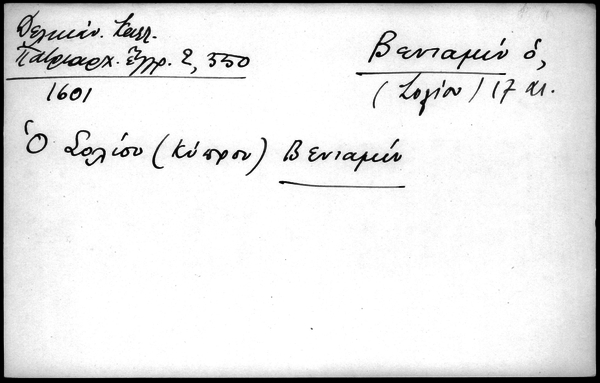 Δελικάν. Καλλ.
Πατριαρχ. Ἔγγρ. 2, 550
1601
Βενιαμὶν ὁ,
(Σολίου) 17 αι.
Ὁ Σολίου (Κύπρου) Βενιαμὶν